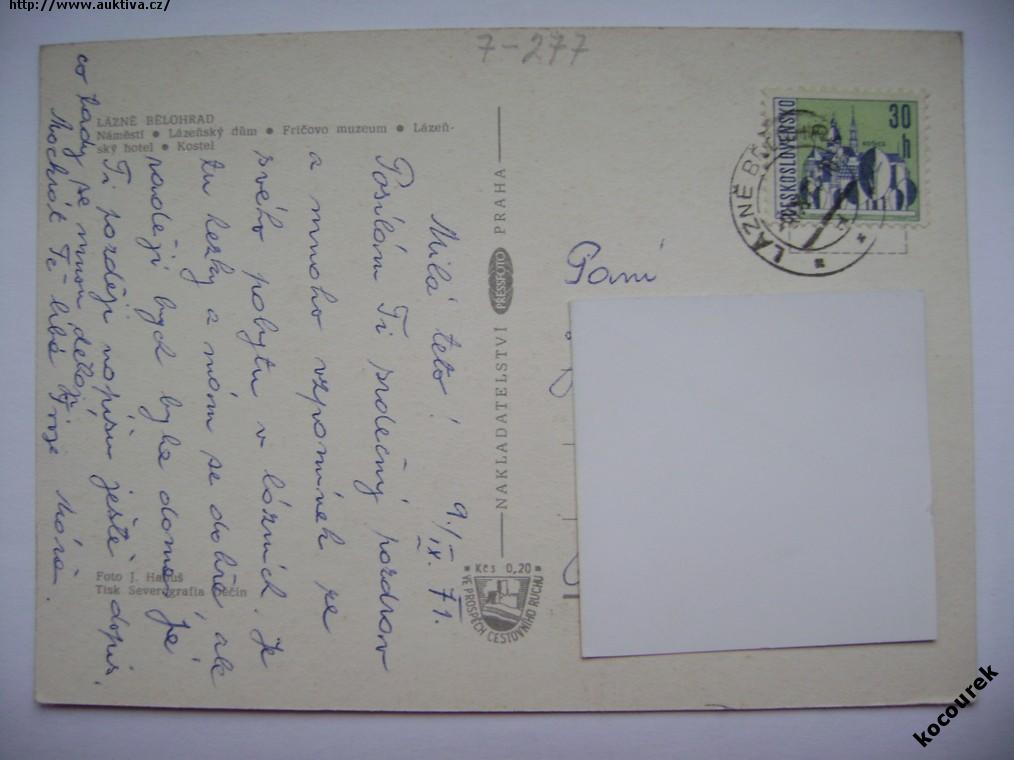 http://www.auktiva.cz/
7-277
LÁZNĚ BĚLOHRAD
Náměstí • Lázeňský dům • Fričovo muzeum • Lázeň-
ský hotel • Kostel
9./IX. 71.
Milá teto!
Posílám Ti srdečný pozdrav
a mnoho vzpomínek ze
svého pobytu v lázních. Je
tu hezky a mám se dobře, ale
raději bych byla doma. Je
Ti později napíšu ještě dopis,
co tady se mnou dělají.
Mockrát Tě líbá Mára.
Foto J. Hanuš
Tisk Severografia Děčín
NAKLADATELSTVÍ PRESSFOTO PRAHA
Kčs 0,20
VE PROSPĚCH CESTOVNÍHO RUCHU
ČESKOSLOVENSKO
30 h
LÁZNĚ BĚ
Paní
kocourek